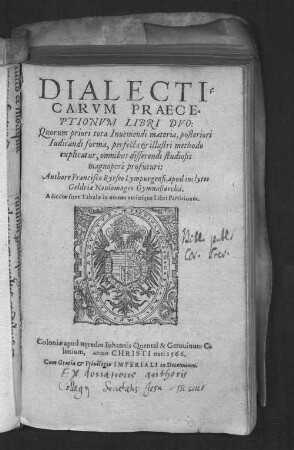 DIALECTI-
CARVM PRAECE-
PTIONVM LIBRI DVO:
Quorum priori tota Inueniendi materia, posteriori
Iudicandi forma, perfecta & illustri methodo
explicatur, omnibus disserendi studiosis
magnoperè profuturi:
Authore Francisco Lymporgensi, apud inclytos
Geldriæ Nouiomagos Gymnasiarcha.
Accedunt Tabulæ in omnes vtriusque Libri Partitiones.
Coloniæ apud Hæredes Iohannis Quentel & Geruuinum Ca
lenium, anno CHRISTI nati 1566.
Cum Gratia & Priuilegio IMPERIALI in Decennium.
Ex donatione authoris
Collegij Societatis Jesu